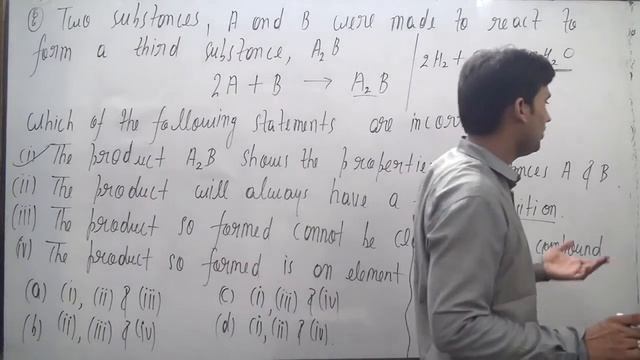 Q Two substances, A and B were made to react to
form a third substance, A₂B
2A + B → A₂B
2H₂ +
H₂O
Which of the following statements are
(i) The product A₂B shows the A & B.
(ii) The product will always have a
(iii) The product so formed cannot be compound
(iv) The product so formed is an element
(a) (i), (ii) & (iii) (c) (i), (iii) & (iv)
(b) (ii), (iii) & (iv) (d) (i), (ii) & (iv).